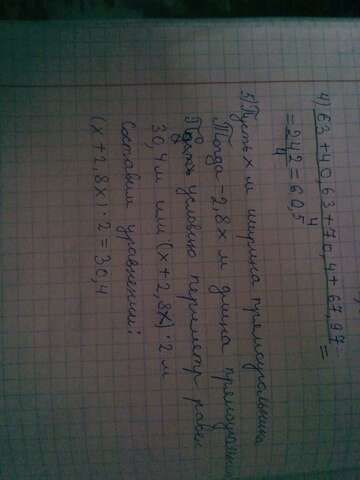 4) 63 + 40,63 + 70,4 + 67,97 =
4
= 242 = 60,5
4
5) Пусть х м ширина прямоугольника
Тогда - 2,8х м длина прямоугольн
По условию периметр равен
30,4 м или (х + 2,8х) · 2 м
Составим уравнение:
(х + 2,8х) · 2 = 30,4